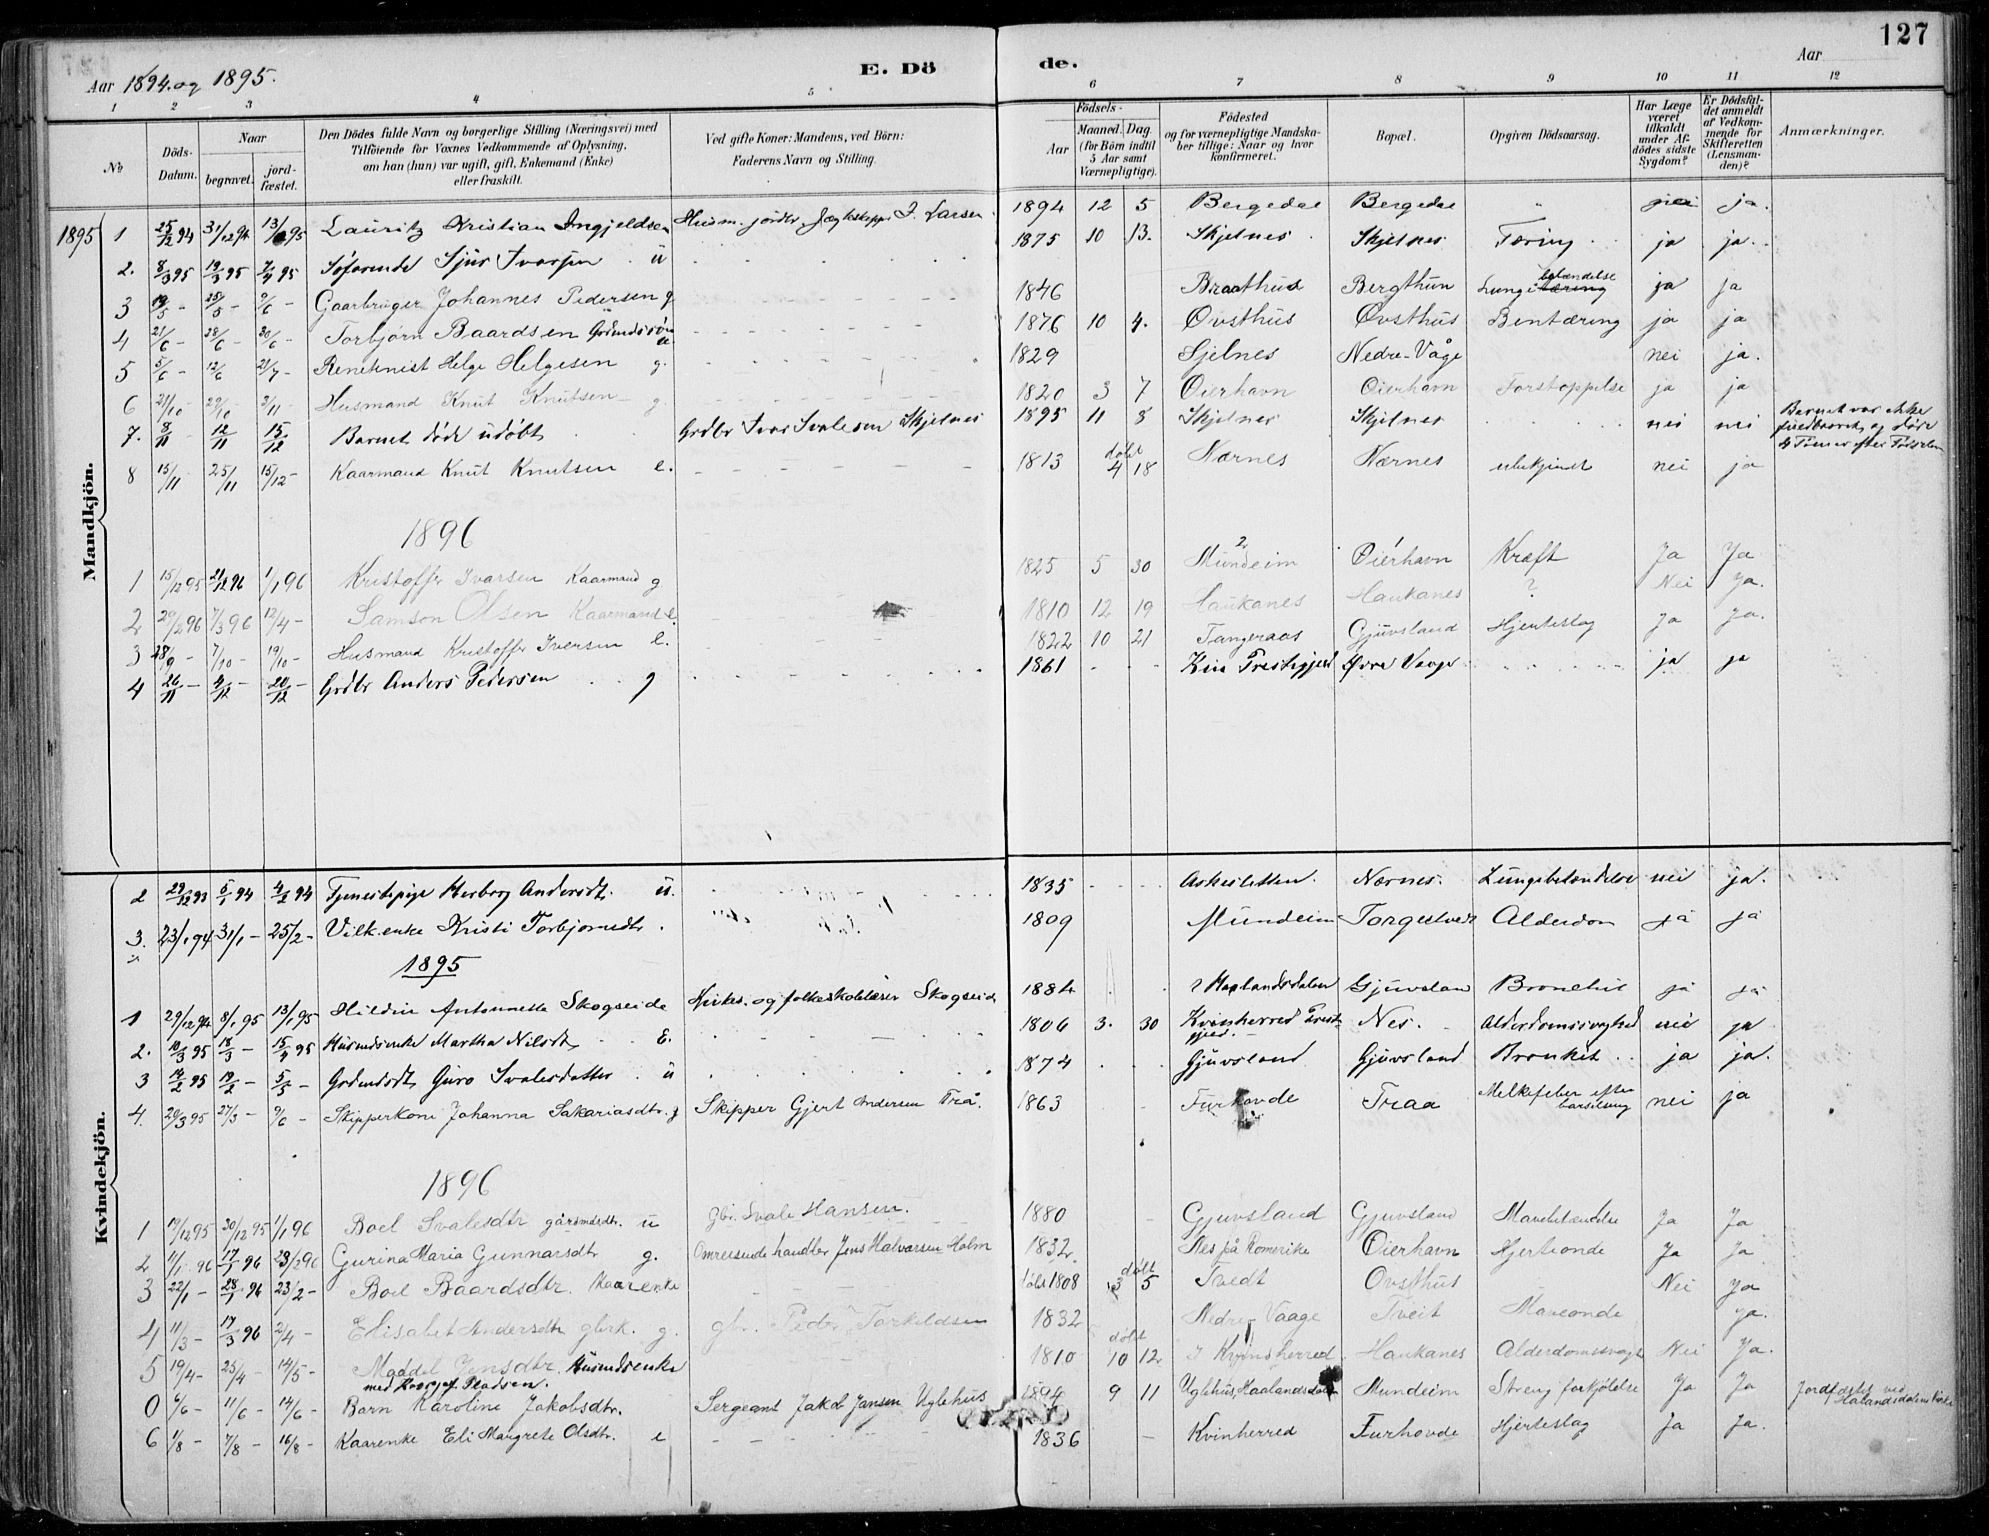 127
Aar 1894. og 1895.
E. Dö
de.
Aar
1 2 3 4 5 6 7 8 9 10 11 12
No
Döds-Datum.
Naar
begravet.
jord-fæstet.
Den Dödes fulde Navn og borgerlige Stilling (Næringsvei) med
Tilföiende for Voxnes Vedkommende af Oplysning,
om han (hun) var ugift, gift, Enkemand (Enke)
eller fraskilt.
Ved gifte Koner: Mandens, ved Börn:
Faderens Navn og Stilling.
Födsels-
Aar
Maaned. Dag.
(for Börn indtil
5 Aar samt
Værnepligtige).
Födested
og for værnepligtige Mandska-
ber tillige: Naar og hvor
konfirmeret.
Bopæl.
Opgiven Dödsaarsag.
Har Læge
været
tilkaldt
under Af-
dödes sidste
Sygdom?
Er Dödsfal-
det anmeldt
af Vedkom-
mende for
Skifteretten
(Lensman-
den)?
Anmærkninger.
Mandkjön.
1895 1 25/12 94 31/12 94 13/ 95 Lauritz Kristian Ingjeldsen Husm. jordbr. Jægtskipper I. Larsen 1894 12 5 Bergedal Bergedal " nei ja.
2. 8/3 95 19/3 95 7/4 95 Söfarende Sjur Ivarsen u 1875 10 13. Skjelnes Skjelnes Tæring ja ja.
3 19/5 - 25/5 - 9/6 - Gaarbruger Johannes Pedersen g 1846 Braathus Bergthun Lungebetændelse ja ja
4 21/6 - 28/6 - 30/6 - Torbjørn Baardsen Grdmdssön u 1876 10 4. Øvsthus Øvsthus Bentæring ja ja
5 5/6 - 12/6 21/7 - Helge Helgesen g. 1829 Sjelnes Nedre-Våge nei ja.
6 21/10 - 29/10 3/11 - Husmand Knut Knutsen g. 1820 3 7 Øierhavn Øierhavn Forstoppelse ja ja
7. 8/11 12/11 15/12 Barnet döde udöbt Grdbr Ivar Svalesen Skjelnes 1895 11 8 Skjelnes Skjelnes nei nei Barnet var ikke fuldbaaret og döde 4 Timer efter Fødselen
8 15/11 25/11 15/12 - Kaarmand Knut Knutsen e. 1813 döbt 4 18 Nærnes Nærnes ubekjendt nei ja
1896
1 15/12 95 21/12 96 1/1 96 Kristoffer Ivarsen Kaarmand g. 1825 5 30 Mundeim Øierhavn Kræft Ja Ja
2 29/2 96 7/3 96 12/4 - Samson Olsen Kaarmand e. 1810 12 19 Haukanes Haukanes ? Nei Ja.
3 28/9 - 7/10 - 19/10 - Husmand Kristoffer Iversen e. 1822 10 21 Tangeraas Gjuvsland Hjerteslag Ja Ja.
4 26/11 - 4/12 - 20/12 - Grdbr Anders Pedersen g 1861 Kin Prestegjeld Øvre Vaage ja ja
Kvindekjön.
2 29/12 93 5/1 94 4/2 94 Tjenestepige Herborg Andersdt. u. 1835 Askesletten. Nærnes. Lungebetændelse nei ja.
3. 23/1 94 31/1 - 25/2 - Vilk.enke Kristi Torbjornsdtr. 1809 Mundeim Torgeltveit Alderdom ja ja
1895
1 29/12 94 8/1 95 13/1 95 Hildur Antonnette Skogseide Kirkes. og folkeskolelærer Skogseide 1884 Haalandsdalen Gjuvsland Bronchit ja ja
2. 10/3 95 18/3 - 15/4 95 Husmdsenke Martha Nilsdt. E. 1806 3. 30 Kvinherred Prestgjeld. Nes. Alderdomssvaghed nei ja
3 14/2 95 19/2 - 5/5 - Grdmdsdt. Guro Svalesdatter u 1874 Gjuvsland Gjuvsland Bronkit ja ja.
4. 20/3 95 27/3 - 9/6 - Skipperkone Johanna Sakariasdtr. g Skipper Gjert Andersen Trå. 1863 Furhovde Traa Melkefeber efter barselseng nei ja
1896
1 19/12 95 30/12 95 1/1 96 Boel Svalesdtr gårdmdsdtr. u gbr. Svale Hansen. 1880 Gjuvsland Gjuvsland Mavebetændelse Ja Ja
2 11/1 96 17/1 96 23/2 96 Gurina Maria Gunnarsdtr g. Omreisende handler Jens Halvorsen Holm 1832 Nes på Romerike Øierhavn Hjerteonde Ja Ja
3 22/1 - 28/1 96 23/2 - Boel Baardsdtr. Kaarenke 1808 döbt 3 5 Tvedt Øvsthus Nei Ja
4 11/3 - 17/3 96 2/4 - Elisabet Andersdtr gbrk. g. gbr. Peder Torkildsen 1832 Nedre Vaage Tveit Maveonde Ja.
5 19/4 - 25/4 - 14/5 - Magdel Jensdtr. Husmdsenke 1810 döbt 10 12 I Kvinsherred Haukanes Alderdomssvagh Nei Ja.
0 6/6 - 11/6 - 14/6 - Barn Karoline Jakobsdtr. Sergeant Jakob Jansen Uglehus 1894 9 11 Uglehus Haalandsdalen Mundeim Streng forkjölelse Ja Ja Jordfæstet ved Hålandsdalens Kirke
6 1/8 - 7/8 - 16/8 - Kaarenke Eli Margrete Olsdtr. e 1836 Kvinherred Furhovde Hjerteslag Ja Ja.